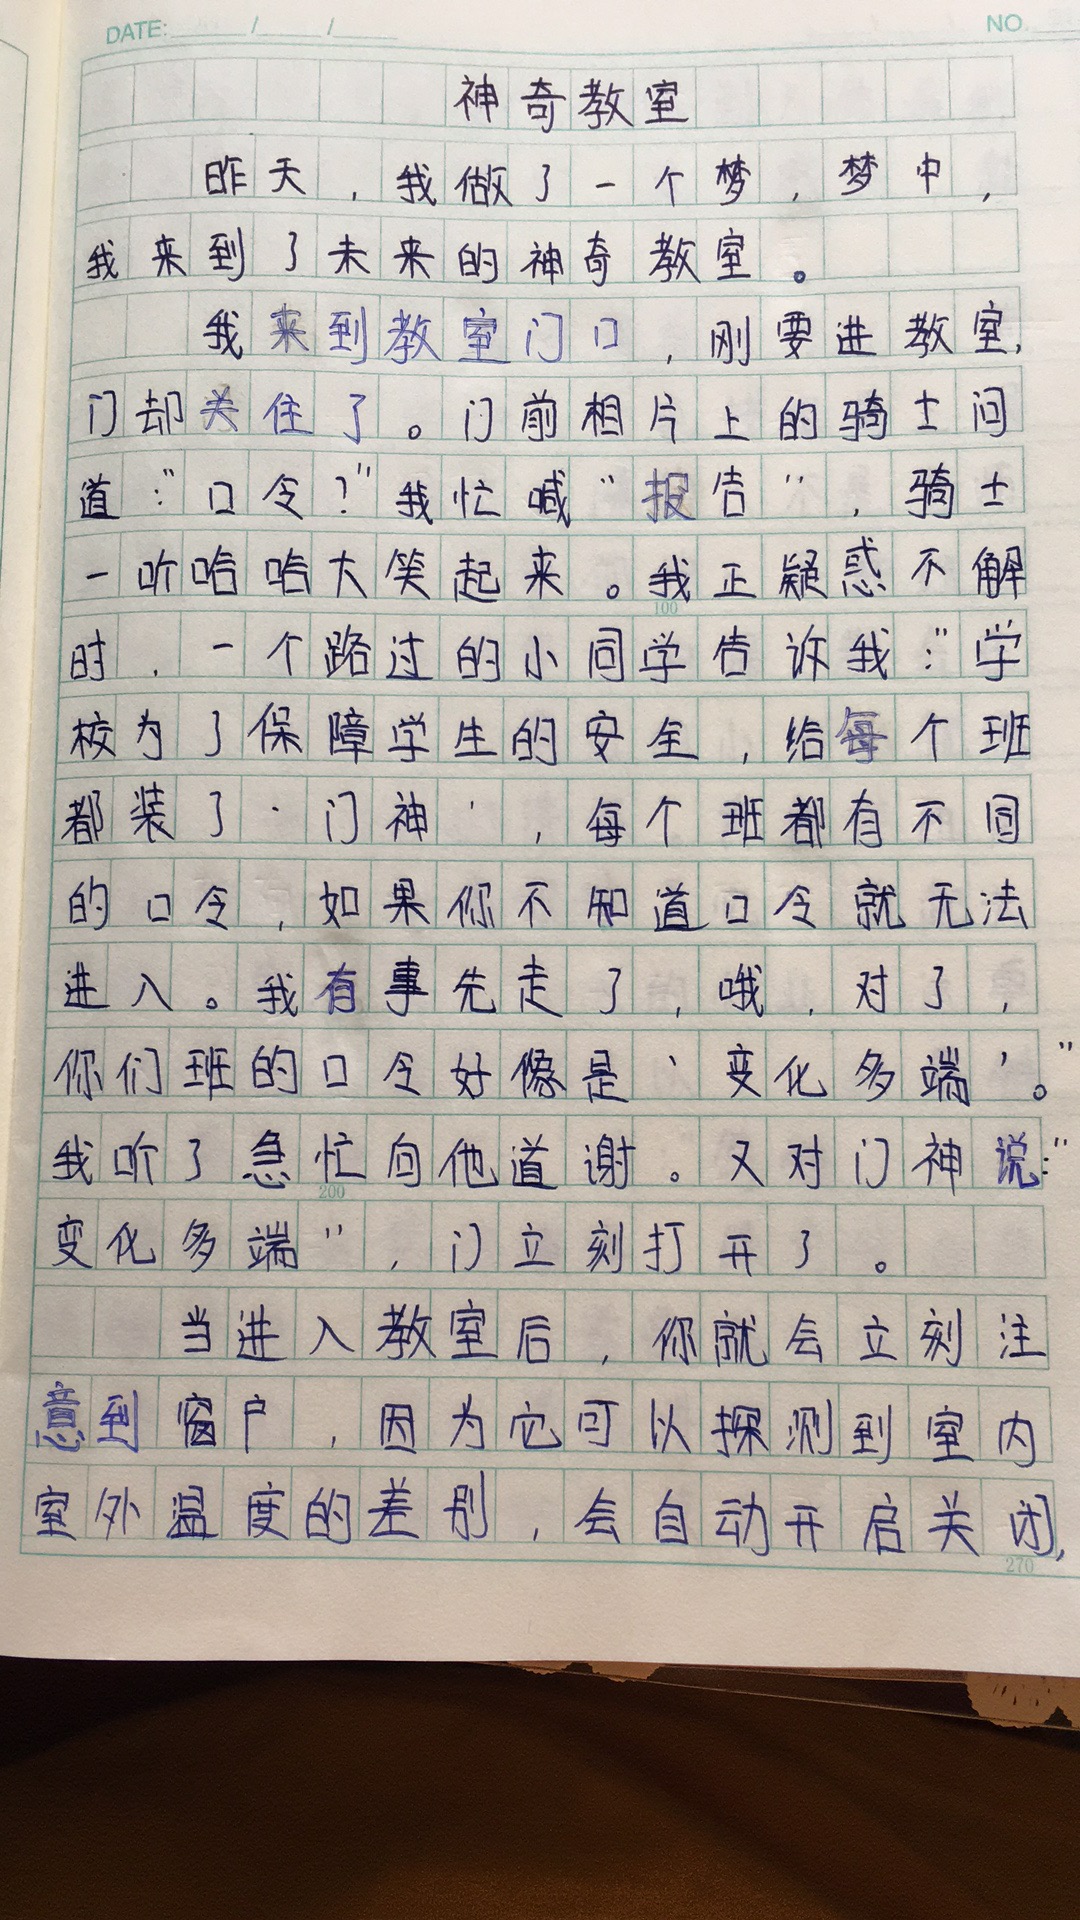 DATE: / /
NO.
神奇教室
昨天，我做了一个梦，梦中，
我来到了未来的神奇教室。
我来到教室门口，刚要进教室，
门却关住了。门前相片上的骑士问
道：“口令？”我忙喊“报告”，骑士
一听哈哈大笑起来。我正疑惑不解
100
时，一个路过的小同学告诉我：“学
校为了保障学生的安全，给每个班
都装了‘门神’，每个班都有不同
的口令，如果你不知道口令就无法
进入。我有事先走了，哦，对了，
你们班的口令好像是‘变化多端’”。
我听了急忙向他道谢。又对门神说：“
200
变化多端”，门立刻打开了。
当进入教室后，你就会立刻注
意到窗户，因为它可以探测到室内
室外温度的差别，会自动开启关闭，
270